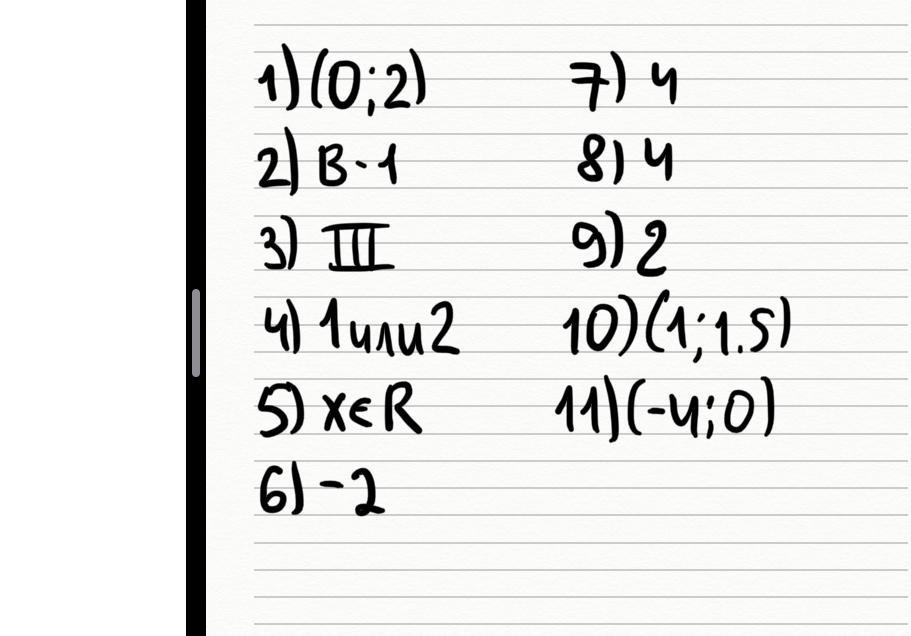 1) (0;2)
2) B-1
3) III
4) 1 или 2
5) x∈R
6) -2
7) 4
8) 4
9) 2
10) (1;1.5)
11) (-4;0)